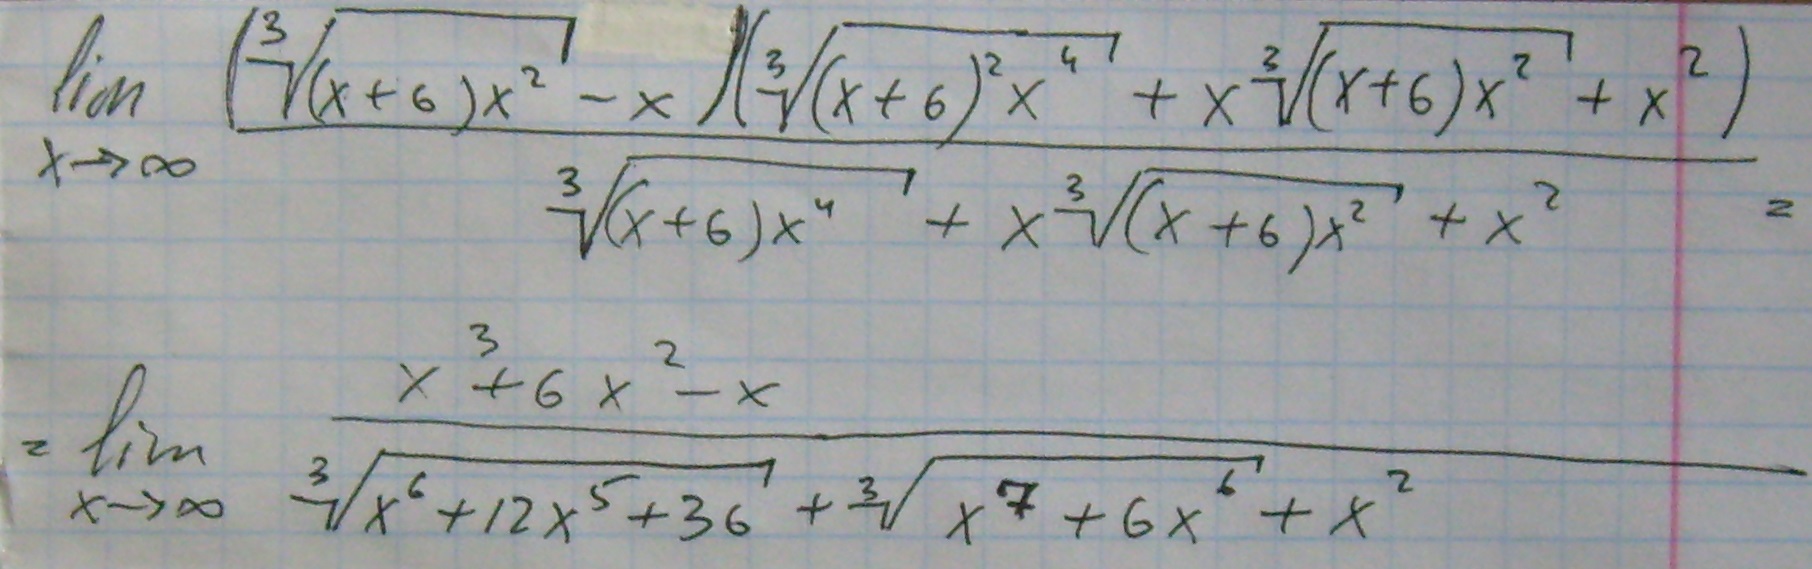 lim x→∞ (∛((x+6)x²) - x)(∛((x+6)²x⁴) + x∛((x+6)x²) + x²) / (∛((x+6)x⁴) + x∛((x+6)x²) + x²) =
= lim x→∞ (x³+6x²-x) / (∛(x⁶+12x⁵+36) + ∛(x⁷+6x⁶) + x²)